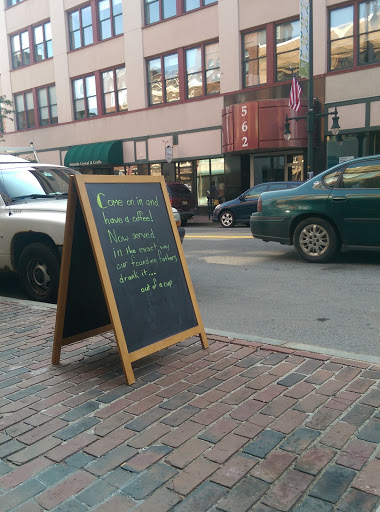 562
Come on in and
have a coffee!
Now served
in the exact way
our founding fathers
drank it...
out of a cup